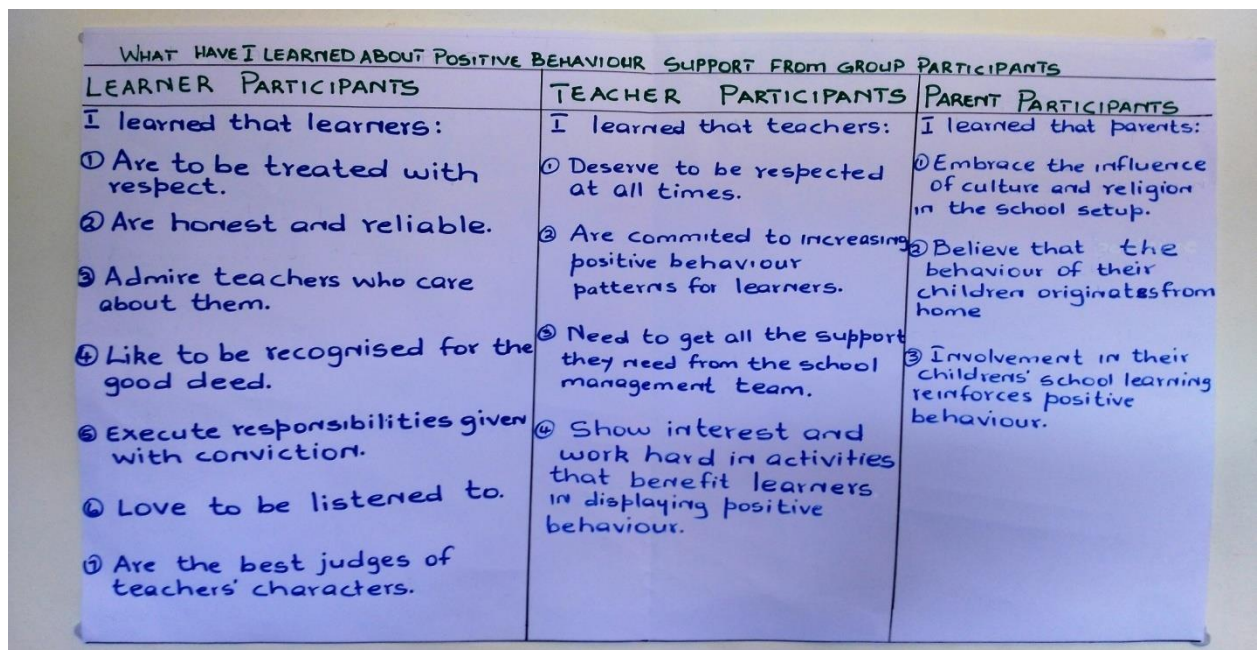 WHAT HAVE I LEARNED ABOUT POSITIVE BEHAVIOUR SUPPORT FROM GROUP PARTICIPANTS
LEARNER PARTICIPANTS
I learned that learners:
① Are to be treated with
respect.
② Are honest and reliable.
③ Admire teachers who care
about them.
④ Like to be recognised for the
good deed.
⑤ Execute responsibilities given
with conviction.
⑥ Love to be listened to.
⑦ Are the best judges of
teachers' characters.
TEACHER PARTICIPANTS
I learned that teachers:
① Deserve to be respected
at all times.
② Are commited to increasing
positive behaviour
patterns for learners.
③ Need to get all the support
they need from the school
management team.
④ Show interest and
work hard in activities
that benefit learners
in displaying positive
behaviour.
PARENT PARTICIPANTS
I learned that parents:
① Embrace the influence
of culture and religion
in the school setup.
② Believe that the
behaviour of their
children originates from
home
③ Involvement in their
childrens' school learning
reinforces positive
behaviour.